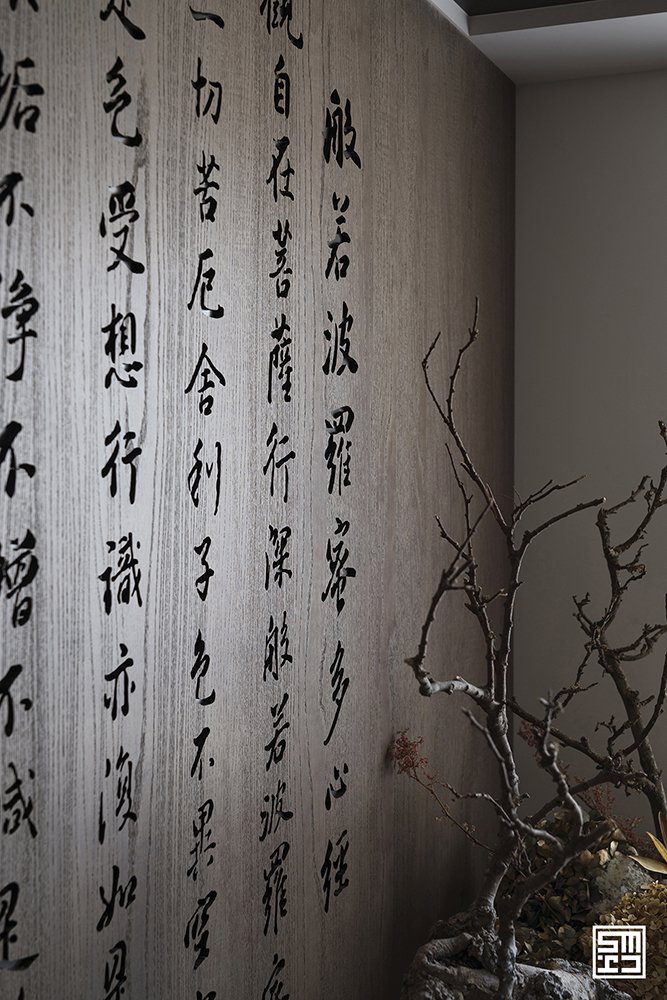 般若波羅蜜多心經
觀自在菩薩行深般若波羅蜜
一切苦厄舍利子色不異空
是色受想行識亦復如是
垢不淨不增不減是